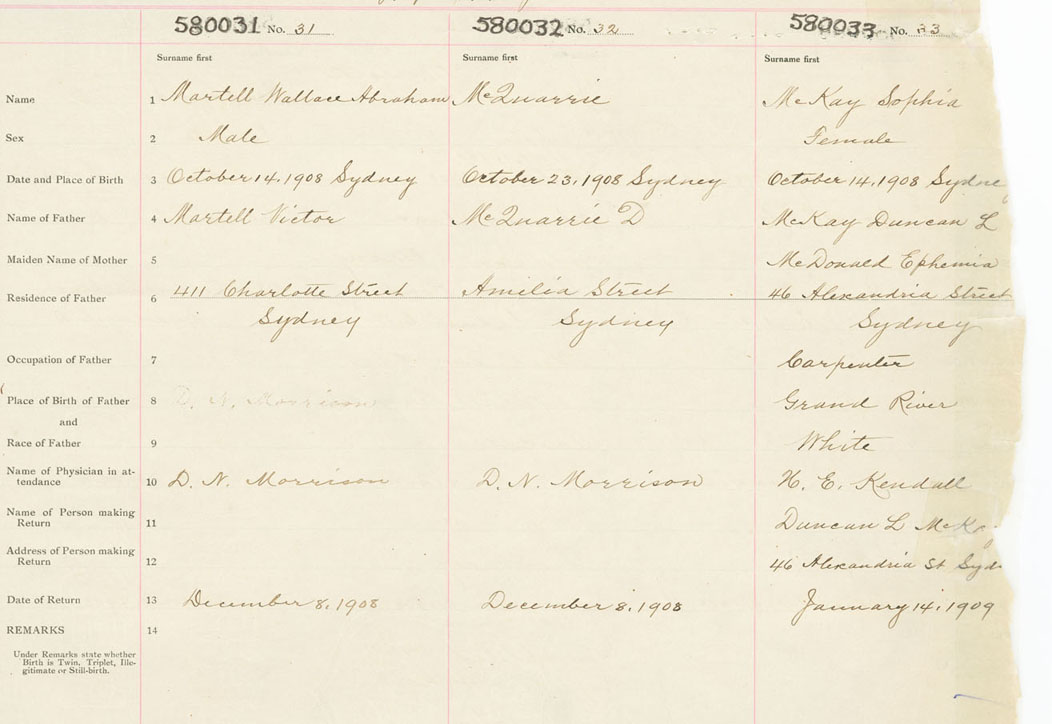 580031 No. 31
580032 No. 32
580033 No. 33
Surname first
Surname first
Surname first
Name 1 Martell Wallace Abraham McQuarrie McKay Sophia
Sex 2 Male Female
Date and Place of Birth 3 October 14, 1908 Sydney October 23, 1908 Sydney October 14, 1908 Sydne
Name of Father 4 Martell Victor McQuarrie D McKay Duncan L
Maiden Name of Mother 5 McDonald Ephemia
Residence of Father 6 411 Charlotte Street Amilia Street 46 Alexandria Street
Sydney Sydney Sydney
Occupation of Father 7 Carpenter
Place of Birth of Father 8 D. N. Morrison Grand River
and
Race of Father 9 White
Name of Physician in at-
tendance 10 D. N. Morrison D. N. Morrison H. E. Kendall
Name of Person making
Return 11 Duncan L McKa
Address of Person making
Return 12 46 Alexandria St Syd
Date of Return 13 December 8, 1908 December 8, 1908 January 14, 1909
REMARKS 14
Under Remarks state whether
Birth is Twin, Triplet, Ille-
gitimate or Still-birth.